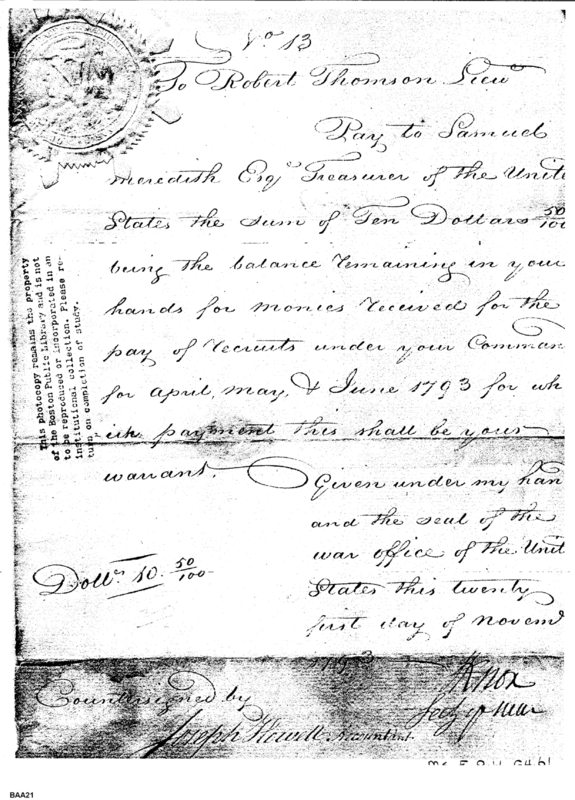 No 13
To Robert Thomson Lieu
Pay to Samuel
Meredith Esqr Treasurer of the Unite
States the sum of Ten Dollars 50/100
being the balance remaining in your
hands for monies received for the
pay of recruits under your Comman
for April, May, & June 1793 for wh
ich payment this shall be your
warrant.
Given under my han
and the seal of the
war office of the Unit
States this twenty
first day of Novem
1793
Dolls. 10. 50/100
Knox
Secy of War
Countersigned by
Joseph Howell Accountant
This photocopy remains the property
of the Boston Public Library and is not
to be reproduced or incorporated in an
institutional collection. Please re-
turn on completion of study.
BAA21